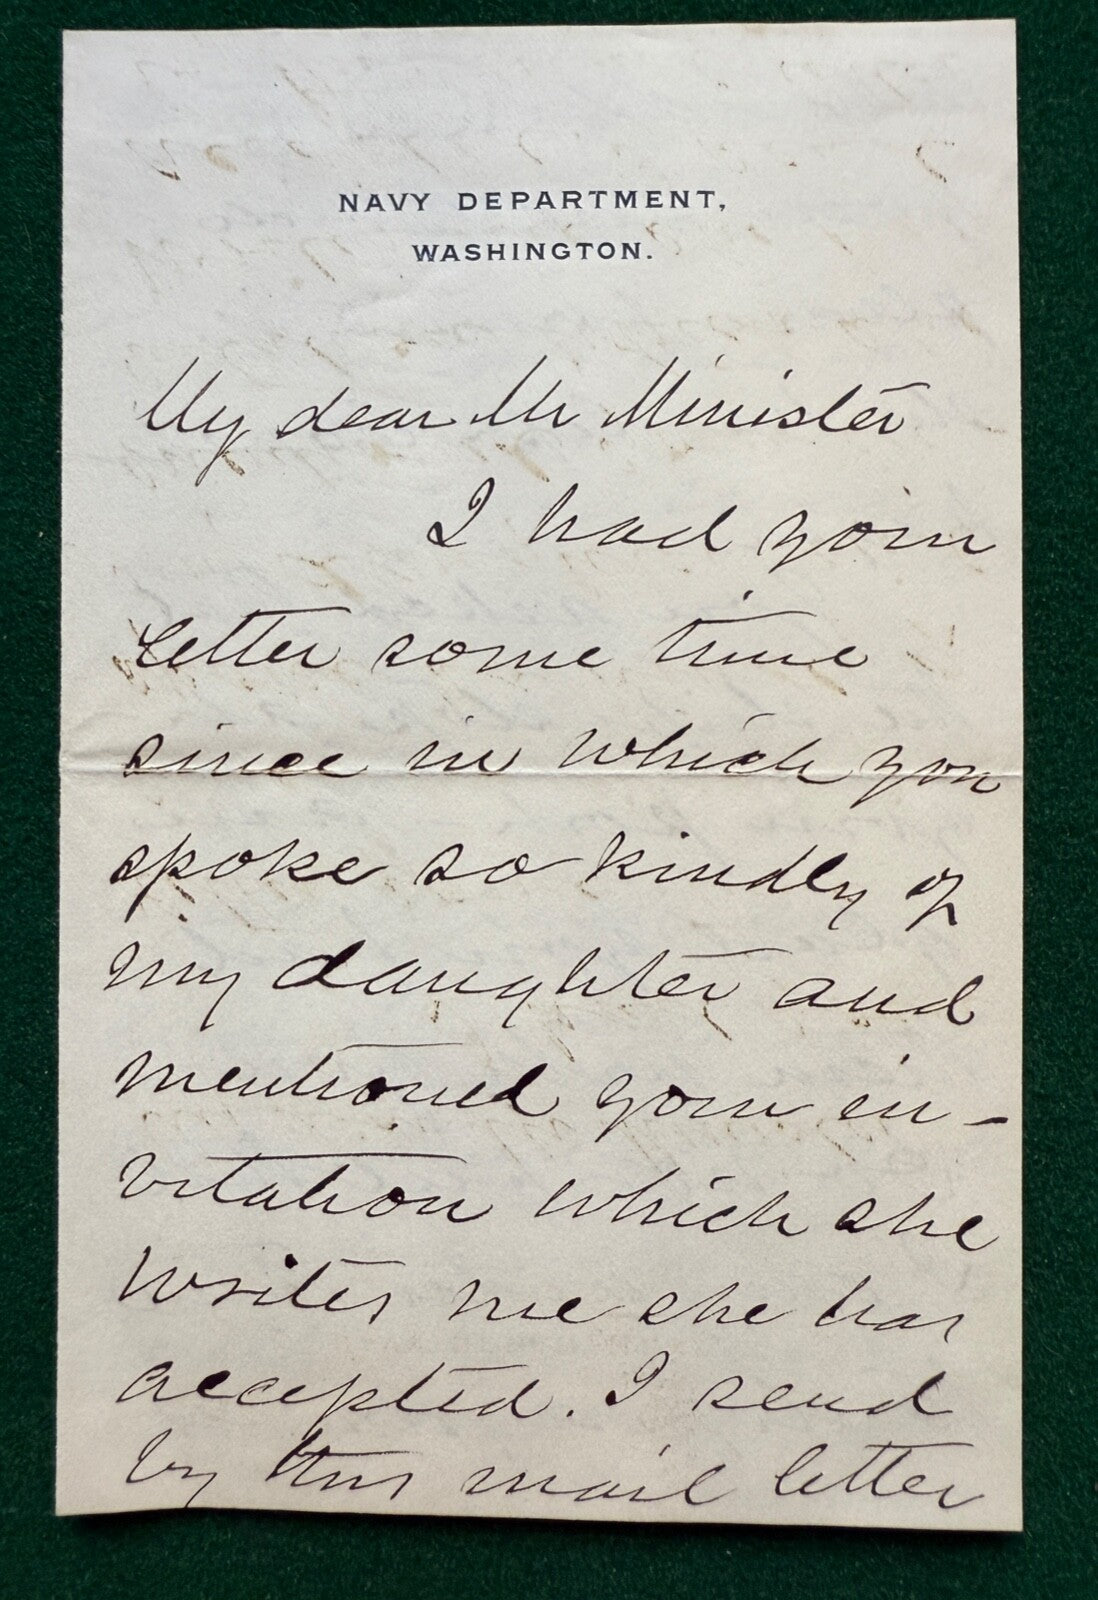 NAVY DEPARTMENT,
WASHINGTON.
My dear Mr Minister
I had your
letter some time
since in which you
spoke so kindly of
my daughter and
mentioned your in-
vitation which she
writes me she has
accepted. I send
by this mail letter